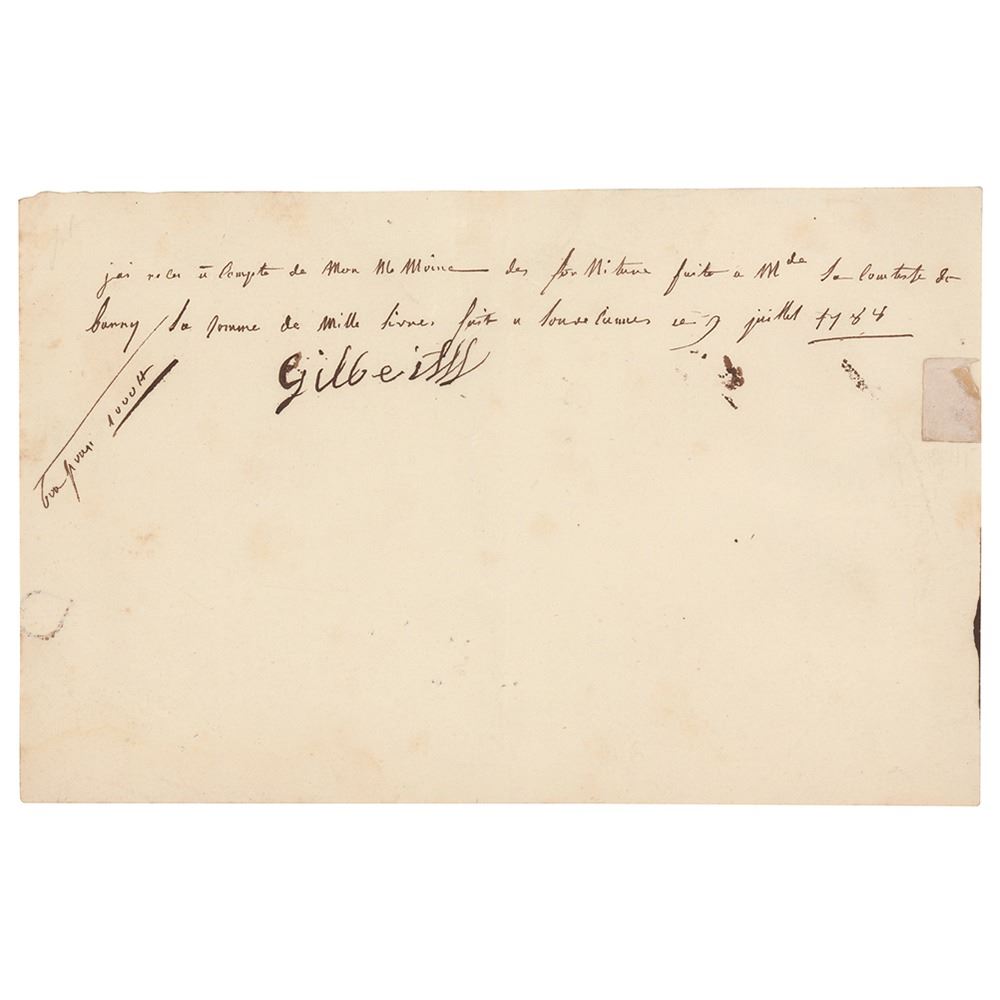 jai recu a Compte de Mon Me Moire des for Niture faite a Mde La Comtesse du
barry La somme de Mille Livres fait a Louveciennes ce 9 juillet 1788
Gilbert
bon pour 1000 ₶